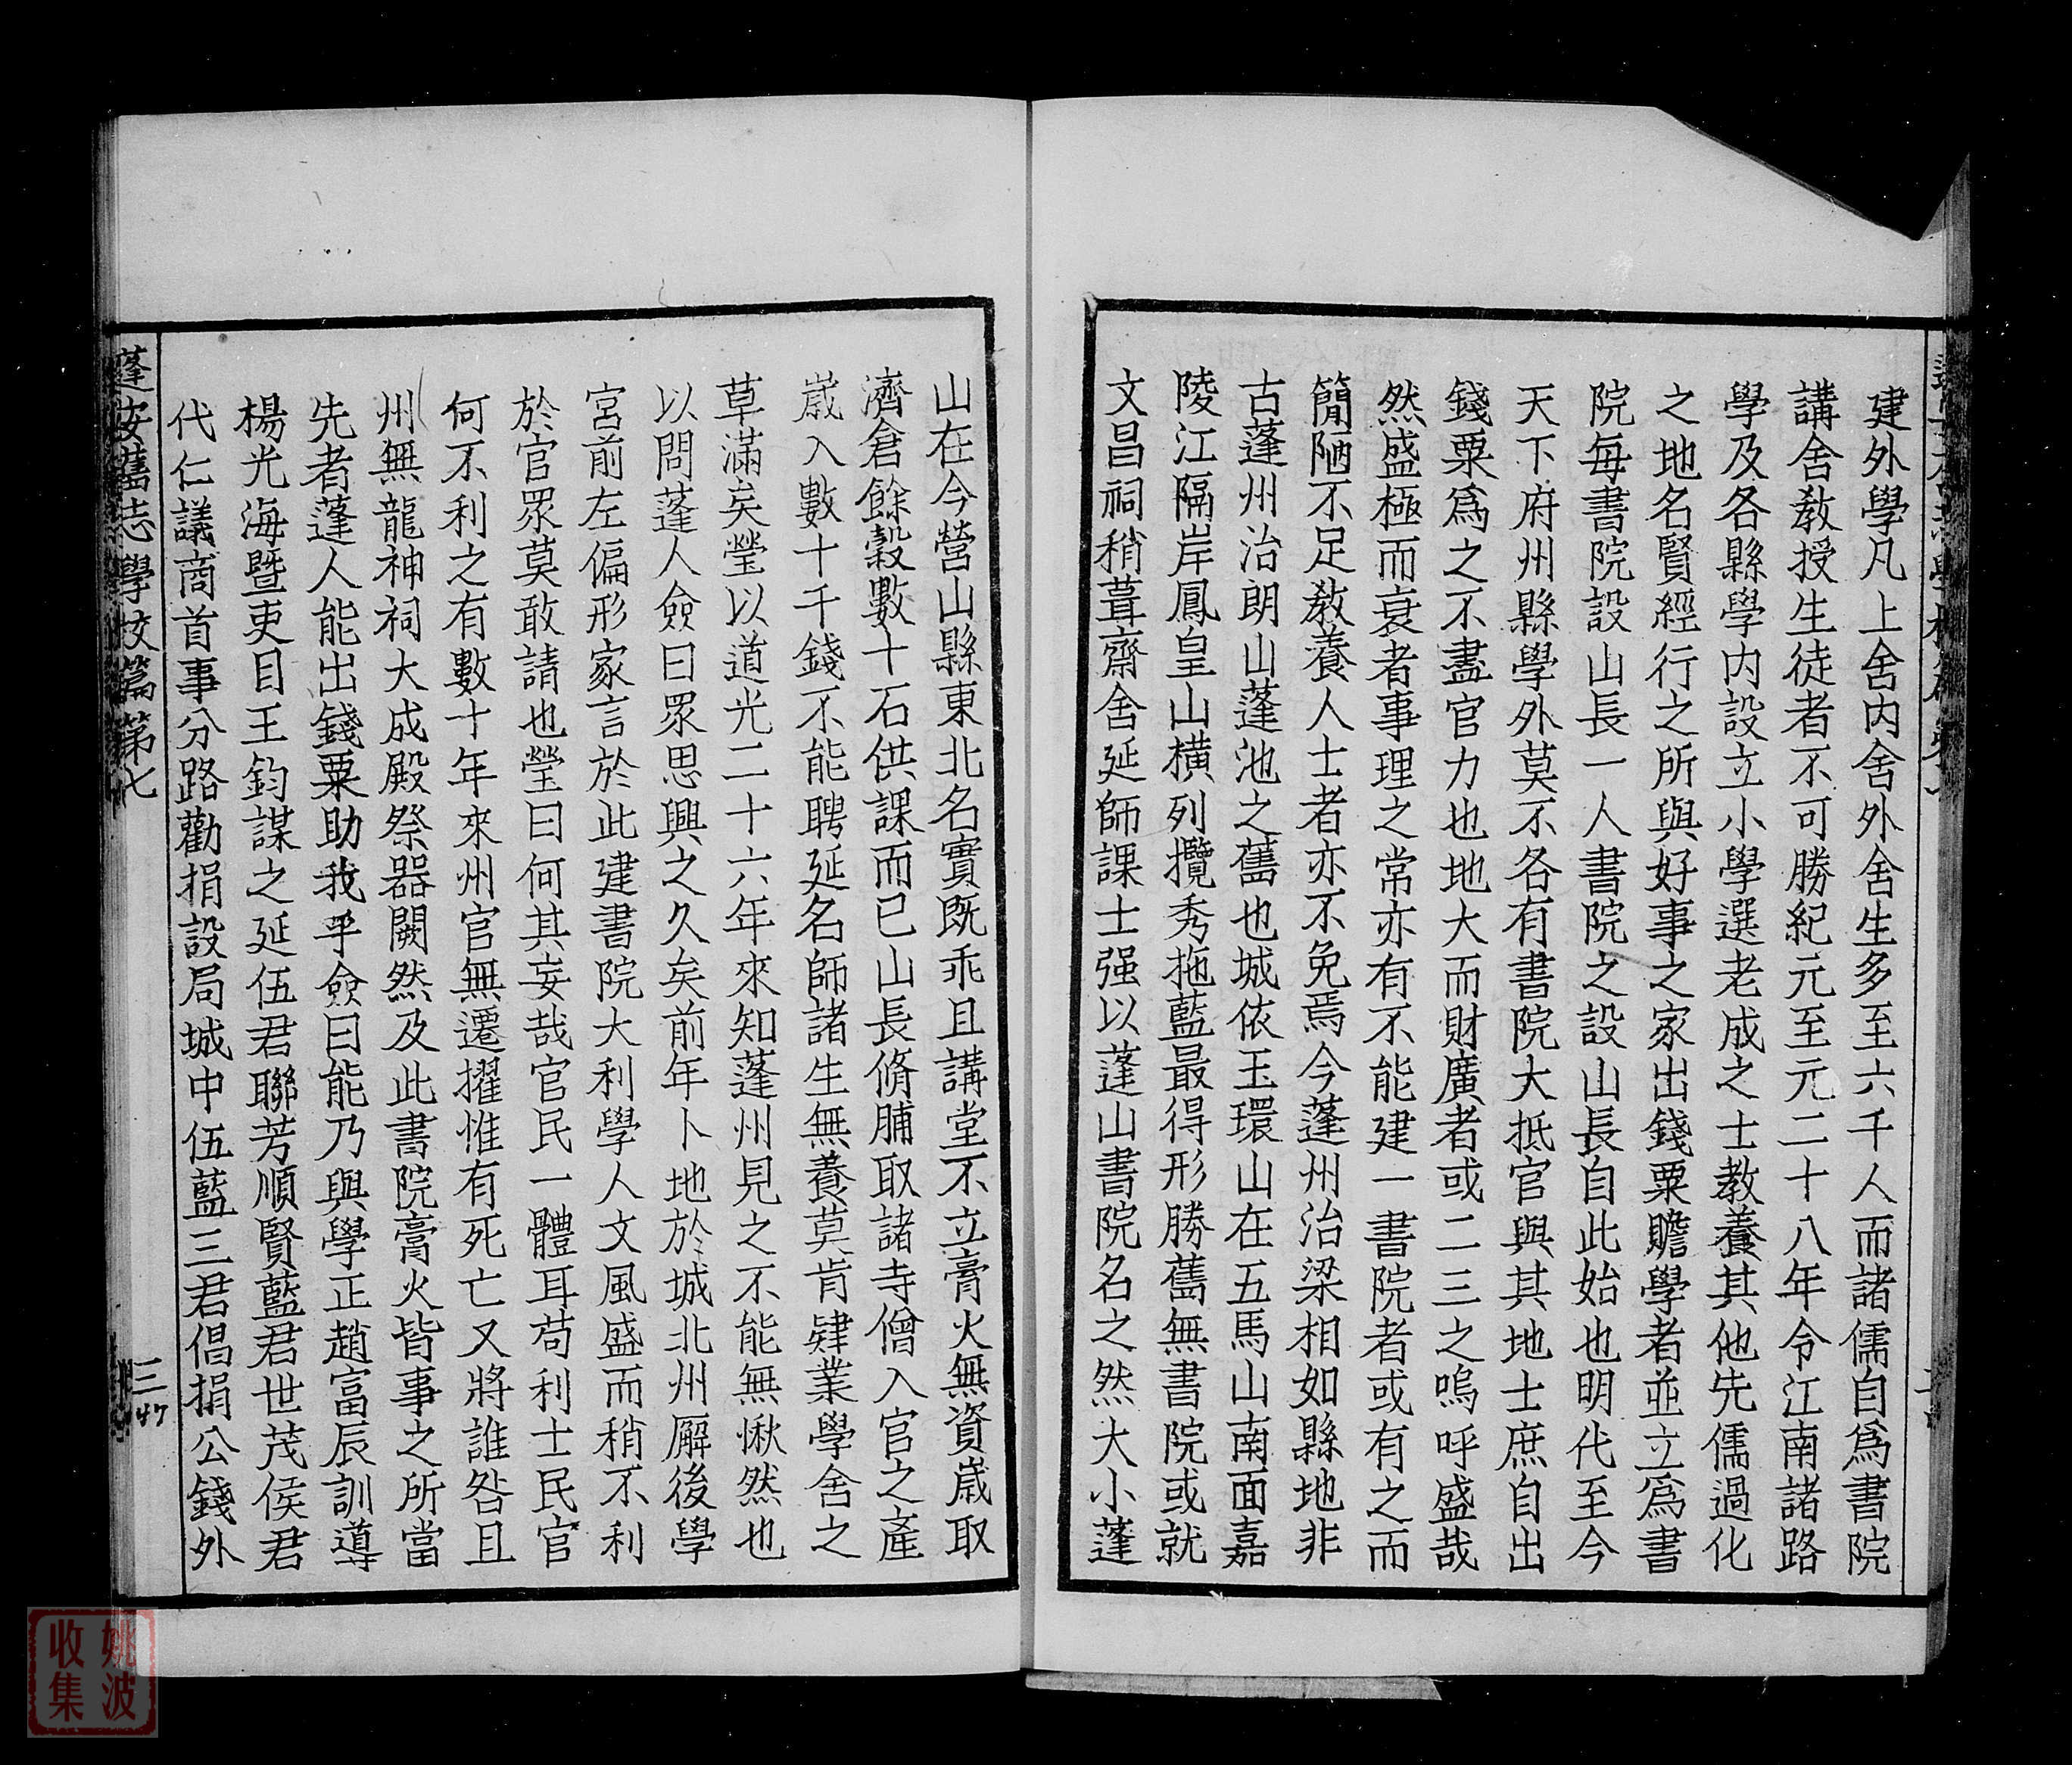 建外學凡上舍内舍外舍生多至六千人而諸儒自爲書院
講舍教授生徒者不可勝紀元至元二十八年令江南諸路
學及各縣學内設立小學選老成之士教養其他先儒過化
之地名賢經行之所與好事之家出錢粟贍學者並立爲書
院每書院設山長一人書院之設山長自此始也明代至今
天下府州縣學外莫不各有書院大抵官與其地士庶自出
錢粟爲之不盡官力也地大而財廣者或二三之嗚呼盛哉
然盛極而衰者事理之常亦有不能建一書院者或有之而
簡陋不足教養人士者亦不免焉今蓬州治梁相如縣地非
古蓬州治朗山蓬池之舊也城依玉環山在五馬山南面嘉
陵江隔岸鳳皇山橫列攬秀拖藍最得形勝舊無書院或就
文昌祠稍葺齋舍延師課士强以蓬山書院名之然大小蓬
山在今營山縣東北名實既乖且講堂不立膏火無資歲取
濟倉餘穀數十石供課而已山長脩脯取諸寺僧入官之產
歲入數十千錢不能聘延名師諸生無養莫肯肄業學舍之
草滿矣瑩以道光二十六年來知蓬州見之不能無愀然也
以問蓬人僉曰眾思興之久矣前年卜地於城北州廨後學
宮前左偏形家言於此建書院大利學人文風盛而稍不利
於官眾莫敢請也瑩曰何其妄哉官民一體耳苟利士民官
何不利之有數十年來州官無遷擢惟有死亡又將誰咎且
州無龍神祠大成殿祭器闕然及此書院膏火皆事之所當
先者蓬人能出錢粟助我乎僉曰能乃與學正趙富辰訓導
楊光海暨吏目王鈞謀之延伍君聯芳順賢藍君世茂侯君
代仁議商首事分路勸捐設局城中伍藍三君倡捐公錢外
蓬安舊志學校篇第七
三
47
姚波
收集